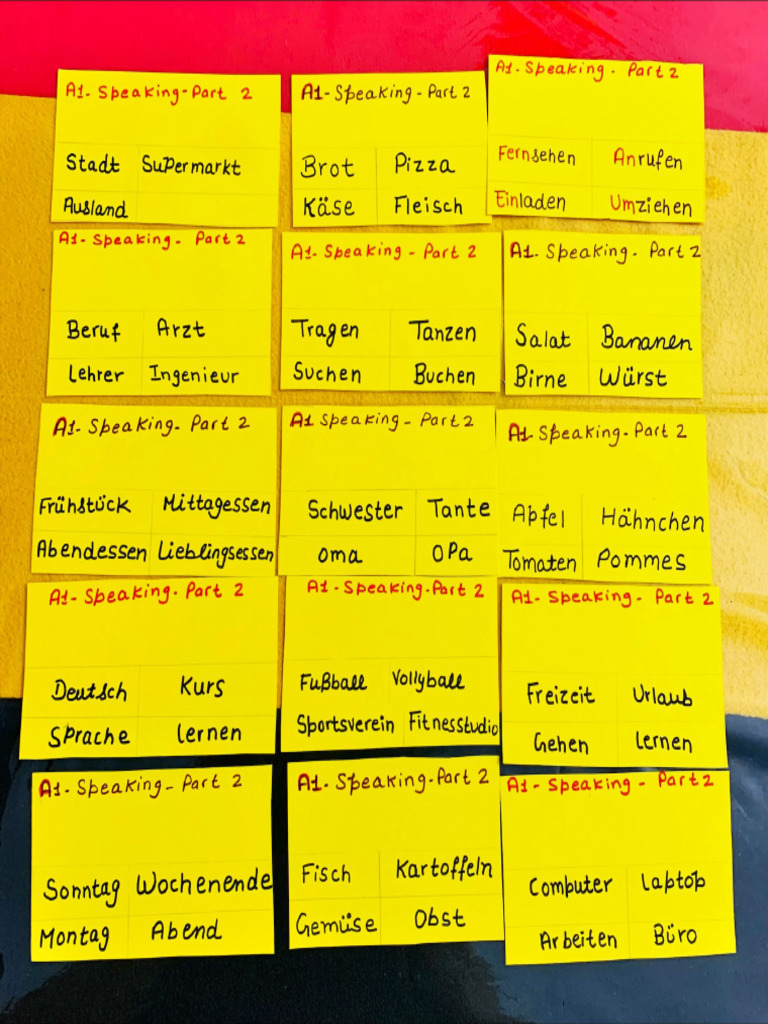 A1- Speaking- Part 2
Stadt Supermarkt
Ausland
A1- Speaking - Part 2
Brot Pizza
Käse Fleisch
A1- Speaking - Part 2
Fernsehen Anrufen
Einladen Umziehen
A1- Speaking - Part 2
Beruf Arzt
Lehrer Ingenieur
A1- Speaking - Part 2
Tragen Tanzen
Suchen Buchen
A1- Speaking - Part 2
Salat Bananen
Birne Würst
A1- Speaking- Part 2
Frühstück Mittagessen
Abendessen Lieblingsessen
A1 Speaking - Part 2
Schwester Tante
oma OPa
A1- Speaking - Part 2
Apfel Hähnchen
Tomaten Pommes
A1- Speaking- Part 2
Deutsch Kurs
Sprache lernen
A1- Speaking-Part 2
Fußball Vollyball
Sportsverein Fitnesstudio
A1- Speaking - Part 2
Freizeit Urlaub
Gehen lernen
A1- Speaking - Part 2
Sonntag Wochenende
Montag Abend
A1- Speaking-Part 2
Fisch Kartoffeln
Gemüse Obst
A1- Speaking - Part 2
Computer laptop
Arbeiten Büro